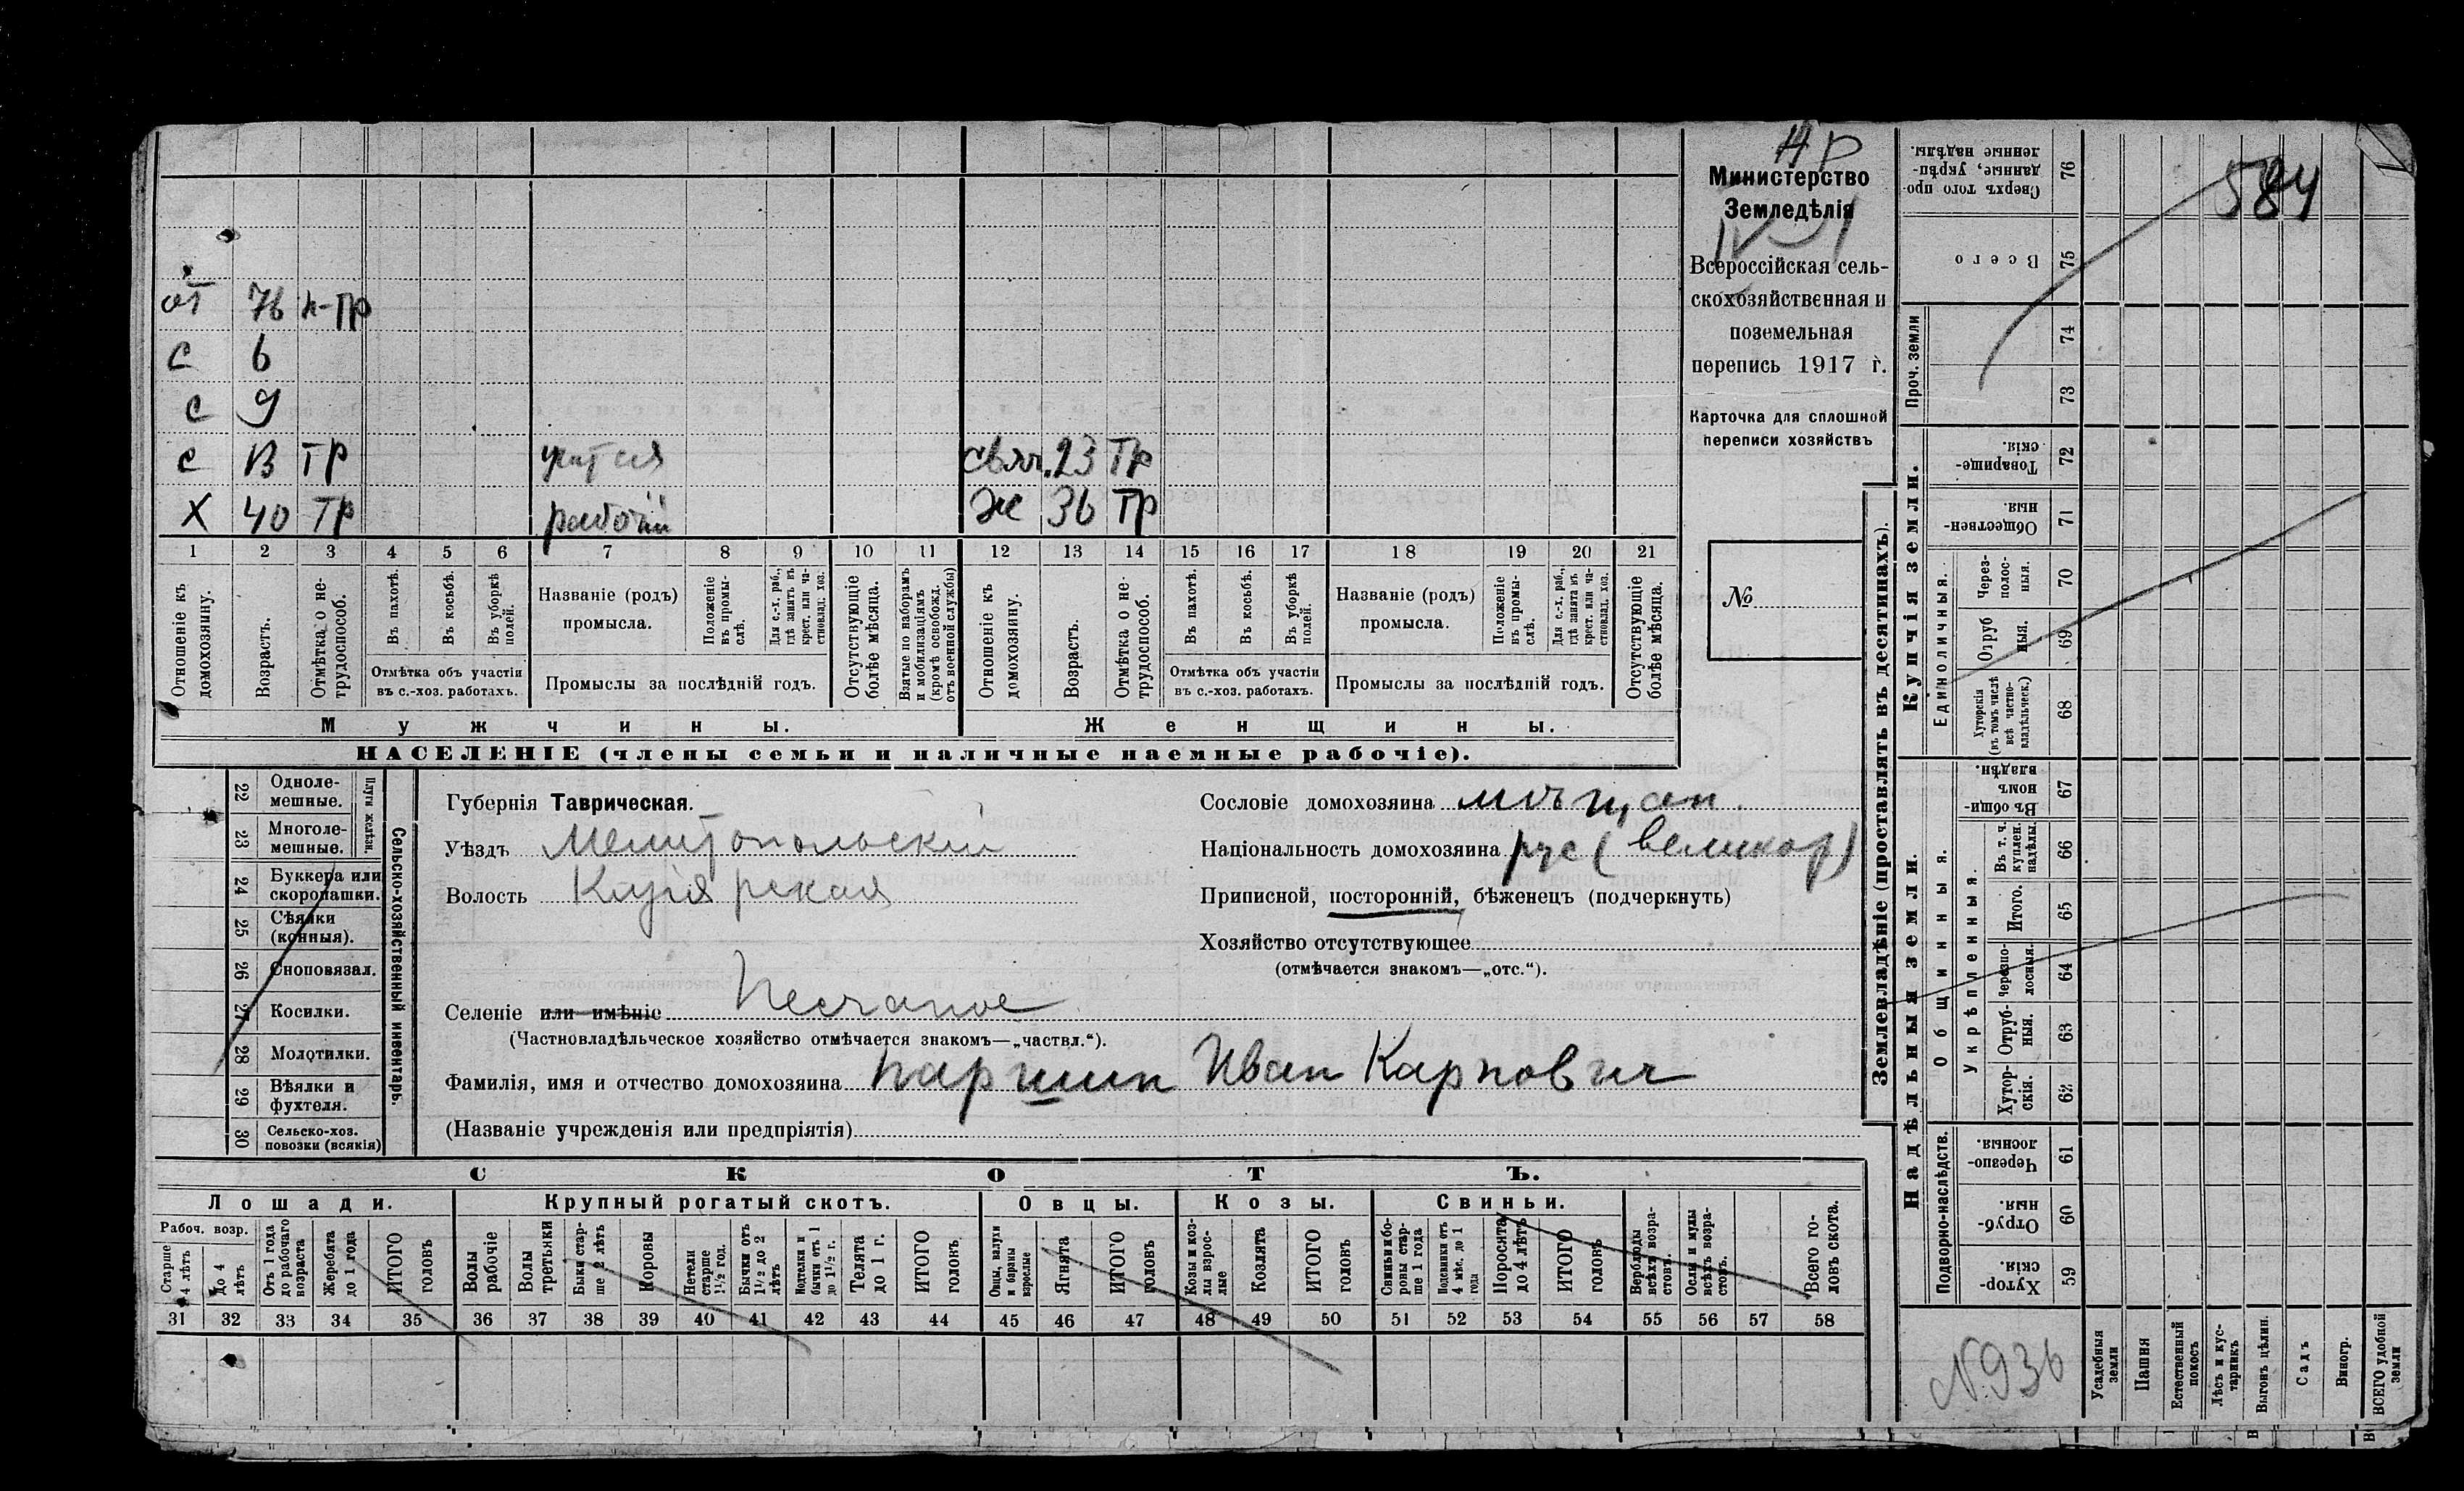 Ар
Министерство
Земледѣлія
IV-1
Всероссійская сель-
скохозяйственная и
поземельная
перепись 1917 г.
Карточка для сплошной
переписи хозяйствъ
№
от 76 н-тр
с 6
с 9
с 13 тр учится свяч. 23 тр
х 40 тр рабочій ж 36 тр
1 2 3 4 5 6 7 8 9 10 11 12 13 14 15 16 17 18 19 20 21
Отношеніе къ домохозяину.
Возрастъ.
Отмѣтка о не-трудоспособ.
Въ пахотѣ.
Въ косьбѣ.
Въ уборкѣ полей.
Отмѣтка объ участіи
въ с.-хоз. работахъ.
Названіе (родъ)
промысла.
Положеніе въ промы-слѣ.
Для с.-х. раб., гдѣ занятъ въ крест. или ча-стновлад. хоз.
Промыслы за послѣдній годъ.
Отсутствующіе болѣе мѣсяца.
Взятые по наборамъ и мобилизаціямъ (кромѣ освобожд. отъ военной службы)
Отношеніе къ домохозяину.
Возрастъ.
Отмѣтка о не-трудоспособ.
Въ пахотѣ.
Въ косьбѣ.
Въ уборкѣ полей.
Отмѣтка объ участіи
въ с.-хоз. работахъ.
Названіе (родъ)
промысла.
Положеніе въ промы-слѣ.
Для с.-х. раб., гдѣ занята въ крест. или ча-стновлад. хоз.
Промыслы за послѣдній годъ.
Отсутствующіе болѣе мѣсяца.
Мужчины. Женщины.
НАСЕЛЕНІЕ (члены семьи и наличные наемные рабочіе).
22 Одноле-мешные.
23 Многоле-мешные.
Плуги желѣзн.
24 Буккера или скоропашки.
25 Сѣялки (конныя).
26 Сноповязал.
27 Косилки.
28 Молотилки.
29 Вѣялки и фухтеля.
30 Сельско-хоз. повозки (всякія)
Сельско-хозяйственный инвентарь.
Губернія Таврическая.
Уѣздъ Мелитопольскій
Волость
Сословіе домохозяина мѣщан.
Національность домохозяина рус (великор)
Приписной, посторонній, бѣженецъ (подчеркнуть)
Хозяйство отсутствующее
(отмѣчается знакомъ—„отс.“).
Селеніе или имѣніе Песчаное
(Частновладѣльческое хозяйство отмѣчается знакомъ—„частвл.“).
Фамилія, имя и отчество домохозяина Паршин Иван Карпович
(Названіе учрежденія или предпріятія)
СКОТЪ.
Лошади. Крупный рогатый скотъ. Овцы. Козы. Свиньи.
Рабоч. возр.
Старше 4 лѣтъ
До 4 лѣтъ
Отъ 1 года до рабочаго возраста
Жеребята до 1 года
ИТОГО головъ
Волы рабочіе
Волы третьяки
Быки стар-ше 2 лѣтъ
Коровы
Нетели старше 1½ год.
Бычки отъ 1½ до 2 лѣтъ
Подтелки и бычки отъ 1 до 1½ г.
Телята до 1 г.
ИТОГО головъ
Овцы, валухи и бараны взрослые
Ягнята
ИТОГО головъ
Козы и коз-лы взрос-лые
Козлята
ИТОГО головъ
Свиньи и бо-ровы стар-ше 1 года
Подсвинки отъ 4 мѣс. до 1 года
Поросята до 4 лѣтъ
ИТОГО головъ
Верблюды всѣхъ возра-стовъ.
Ослы и мулы всѣхъ возра-стовъ.
Всего го-ловъ скота.
31 32 33 34 35 36 37 38 39 40 41 42 43 44 45 46 47 48 49 50 51 52 53 54 55 56 57 58
Землевладѣніе (проставлять въ десятинахъ).
584
76 Сверхъ того про-данные, укрѣп-ленные надѣлы.
75 Всего
Проч. земли
74
73
Купчія земли.
72 Товарище-скія
71 Обществен-ныя
Единоличныя.
70 Через-полос-ныя.
69 Отруб ныя.
68 Хуторскія (въ томъ числѣ всѣ частно-владѣльческ.)
Надѣльныя земли.
Общинныя.
67 Въ общи-номъ владѣн.
Укрѣпленныя.
66 Въ т. ч. куплен. надѣлы.
65 Итого.
64 Черезпо-лосныя.
63 Отруб-ныя.
62 Хутор-скія.
Подворно-наслѣдств.
61 Черезпо-лосныя.
60 Отруб-ныя
59 Хутор-скія.
N 936
Усадебныя земли
Пашня
Естественный покосъ
Лѣсъ и кус-тарникъ
Выгонъ цѣлин.
Садъ
Виногр.
ВСЕГО удобной земли